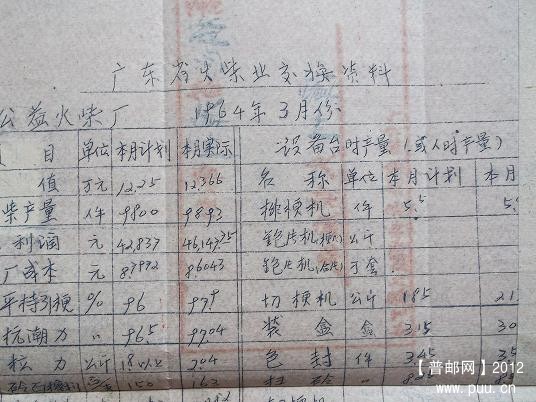 广东省火柴业交换资料
公益火柴厂 1964年3月份
目 单位 本月计划 本月实际 设备台时产量(或人时产量)
值 万元 12.25 12.366 名称 单位 本月计划 本月
柴产量 件 9800 9893 排梗机 件 5.5 5.
利润 元 42,837 46,147.35 公斤
厂成本 元 87972 86043 万套
平持引梗 % 96 切梗机 公斤 185 21
抗潮力 〃 96.5 97.04 装盒 盒 315 30
拉力 公斤 18以上 204 色封 件 345 35
150 163 〃
【普邮网】2012
www.puu.cn